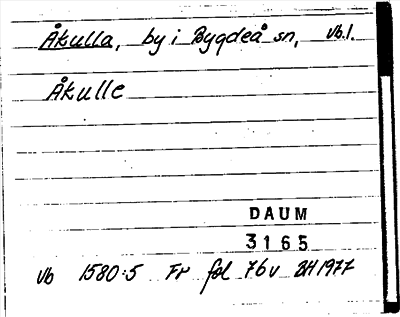 Åkulla, by i Bygdeå sn, Vb.l.
Åkulle
DAUM
3165
Vb 1580:5 Fr fol 76v 2H 1977